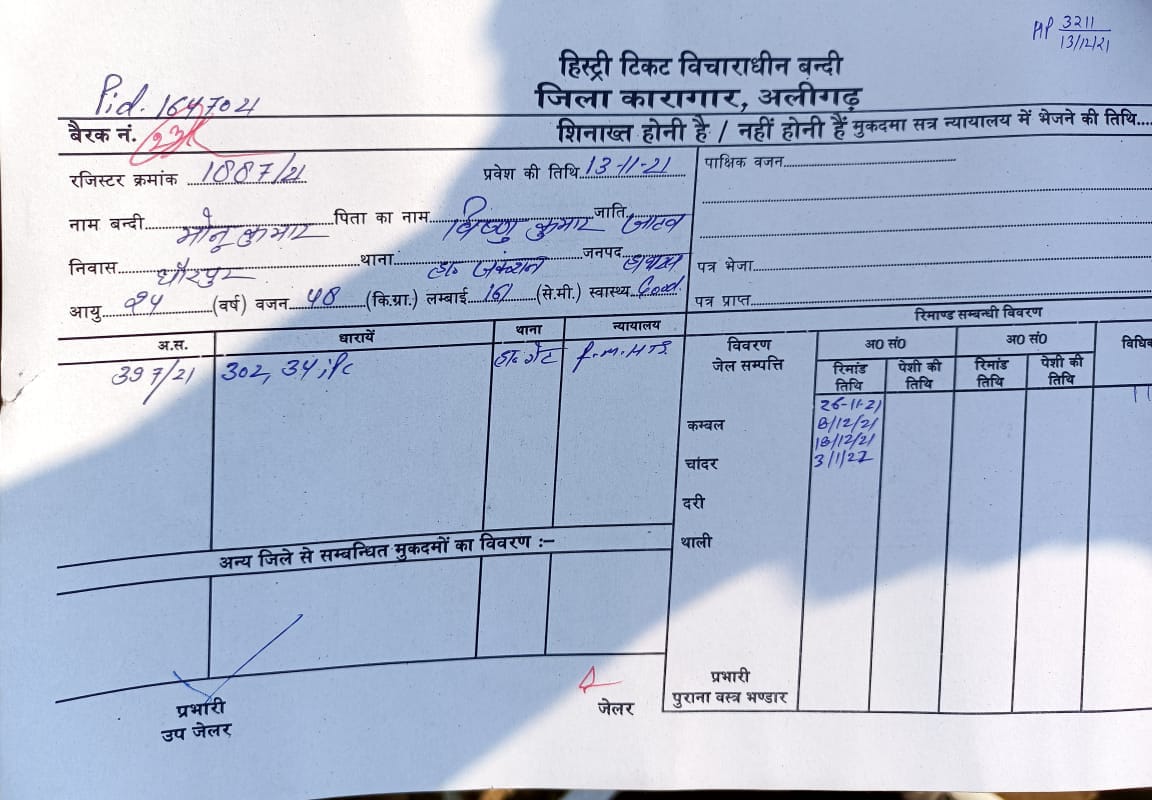 AP 3211
13/12/21
हिस्ट्री टिकट विचाराधीन बन्दी
जिला कारागार, अलीगढ़
Pid. 1647021
बैरक नं.
शिनाख्त होनी है / नहीं होनी है मुकदमा सत्र न्यायालय में भेजने की तिथि....
रजिस्टर क्रमांक 1887/21 प्रवेश की तिथि 13-11-21
पाक्षिक वजन
नाम बन्दी मोनू कुमार पिता का नाम विष्णु कुमार जाति जाटव
निवास धौरपुर थाना हा. जंक्शन जनपद हाथरस
पत्र भेजा
आयु 24 (वर्ष) वजन 48 (कि.ग्रा.) लम्बाई 161 (से.मी.) स्वास्थ्य Good.
पत्र प्राप्त
रिमाण्ड सम्बन्धी विवरण
अ.स. धारायें थाना न्यायालय
विवरण जेल सम्पत्ति
अ0 सं0 अ0 सं0
रिमांड तिथि पेशी की तिथि रिमांड तिथि पेशी की तिथि
397/21 302, 34 ipc हा. गेट
26-11-21
8/12/21
18/12/21
3/1/22
कम्बल
चांदर
दरी
थाली
अन्य जिले से सम्बन्धित मुकदमों का विवरण :-
प्रभारी
उप जेलर
जेलर
प्रभारी
पुराना वस्त्र भण्डार